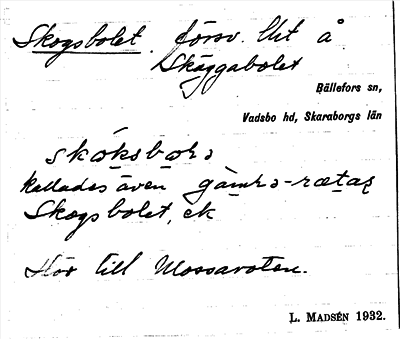 Skogsbolet. försv. lht å
Skäggabolet
Bällefors sn,
Vadsbo hd, Skaraborgs län
skɷ́ksbɷrə
kallades även gàmɬə-rætaʂ
Skogsbolet, ek
Hör till Mossaroten.
L. MADSÉN 1932.